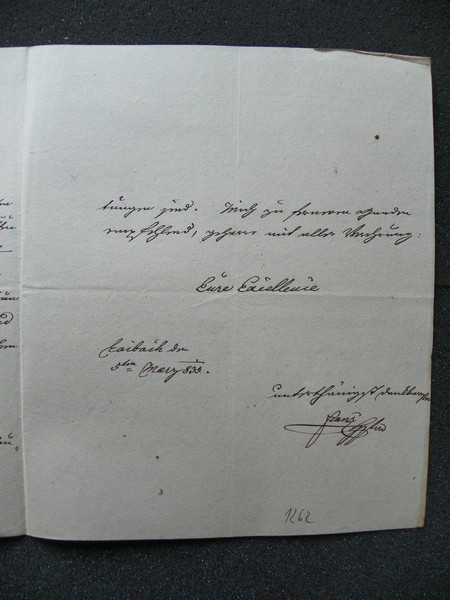 tungen sind. Mich zu fernerer Gnaden
empfehlend, geharre mit aller Verehrung:
Eure Excellence
Laibach den
5ten März 835.
unterthänigst dankbarster
Franz
1262